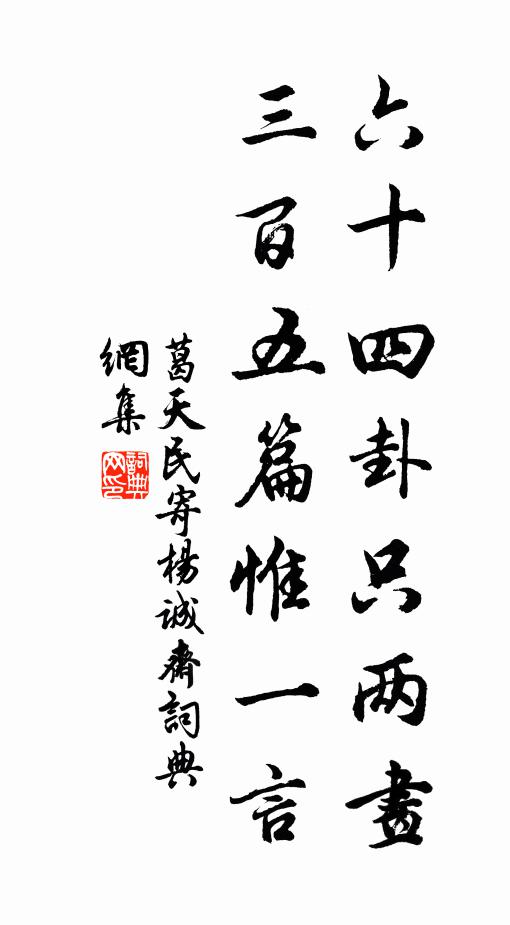 六十四卦只两畫
三百五篇惟一言
葛天民寄楊诚齋詞典
網集
詞典网印